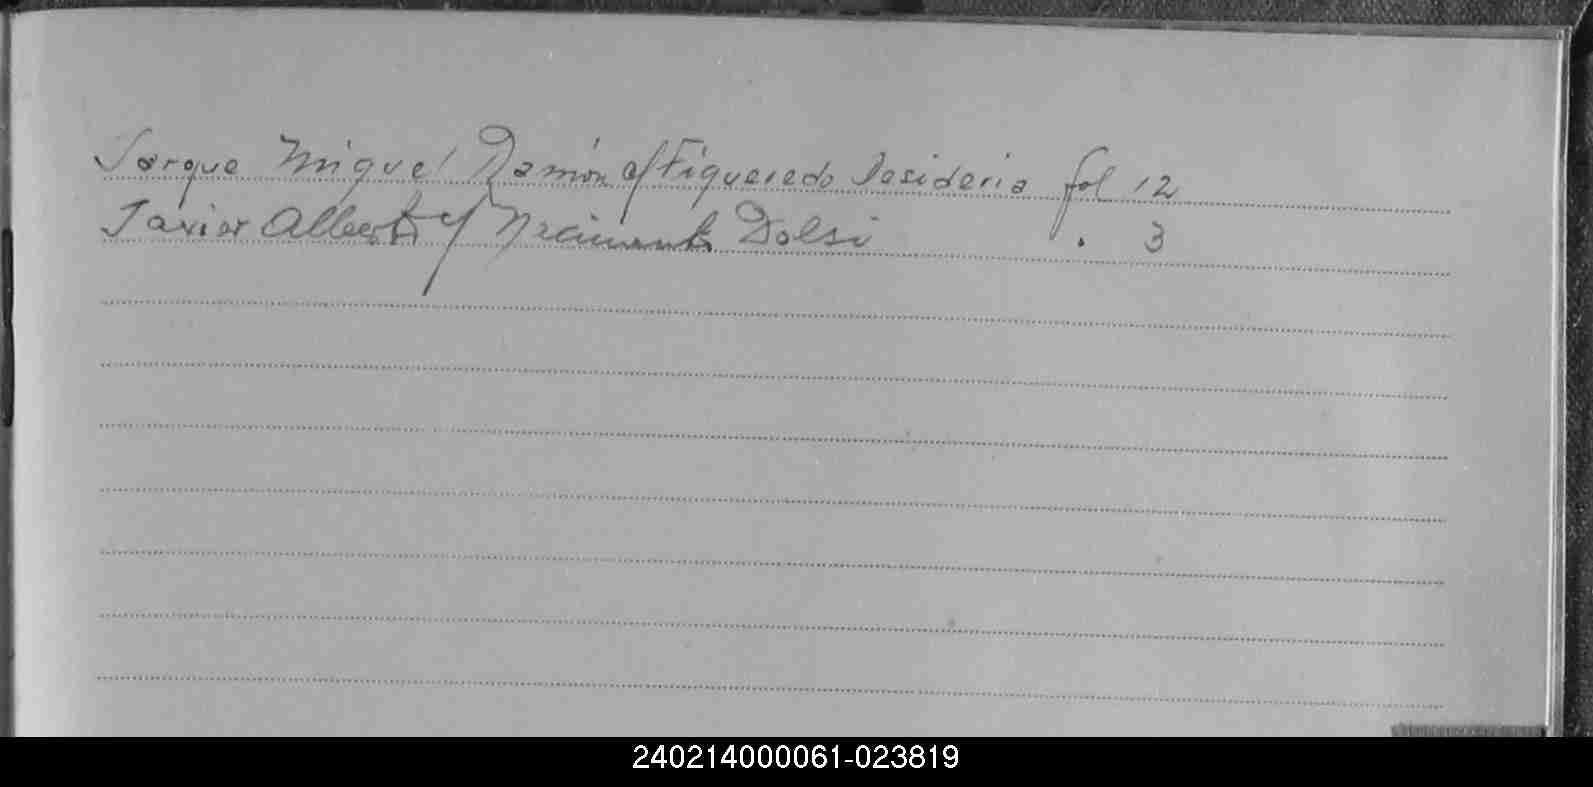 Jorque Miguel Ramón c/ Figueredo Desideria fol 12
Javier Alberto c/ Nacimento Dolsi . 3
240214000061-023819